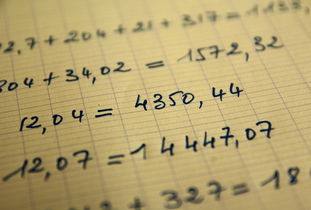 2,7 + 204 + 21 + 317 = 1138,
304 + 34,02 = 1572,32
12,04 = 4350,44
12,07 = 14447,07
+ 327 = 18